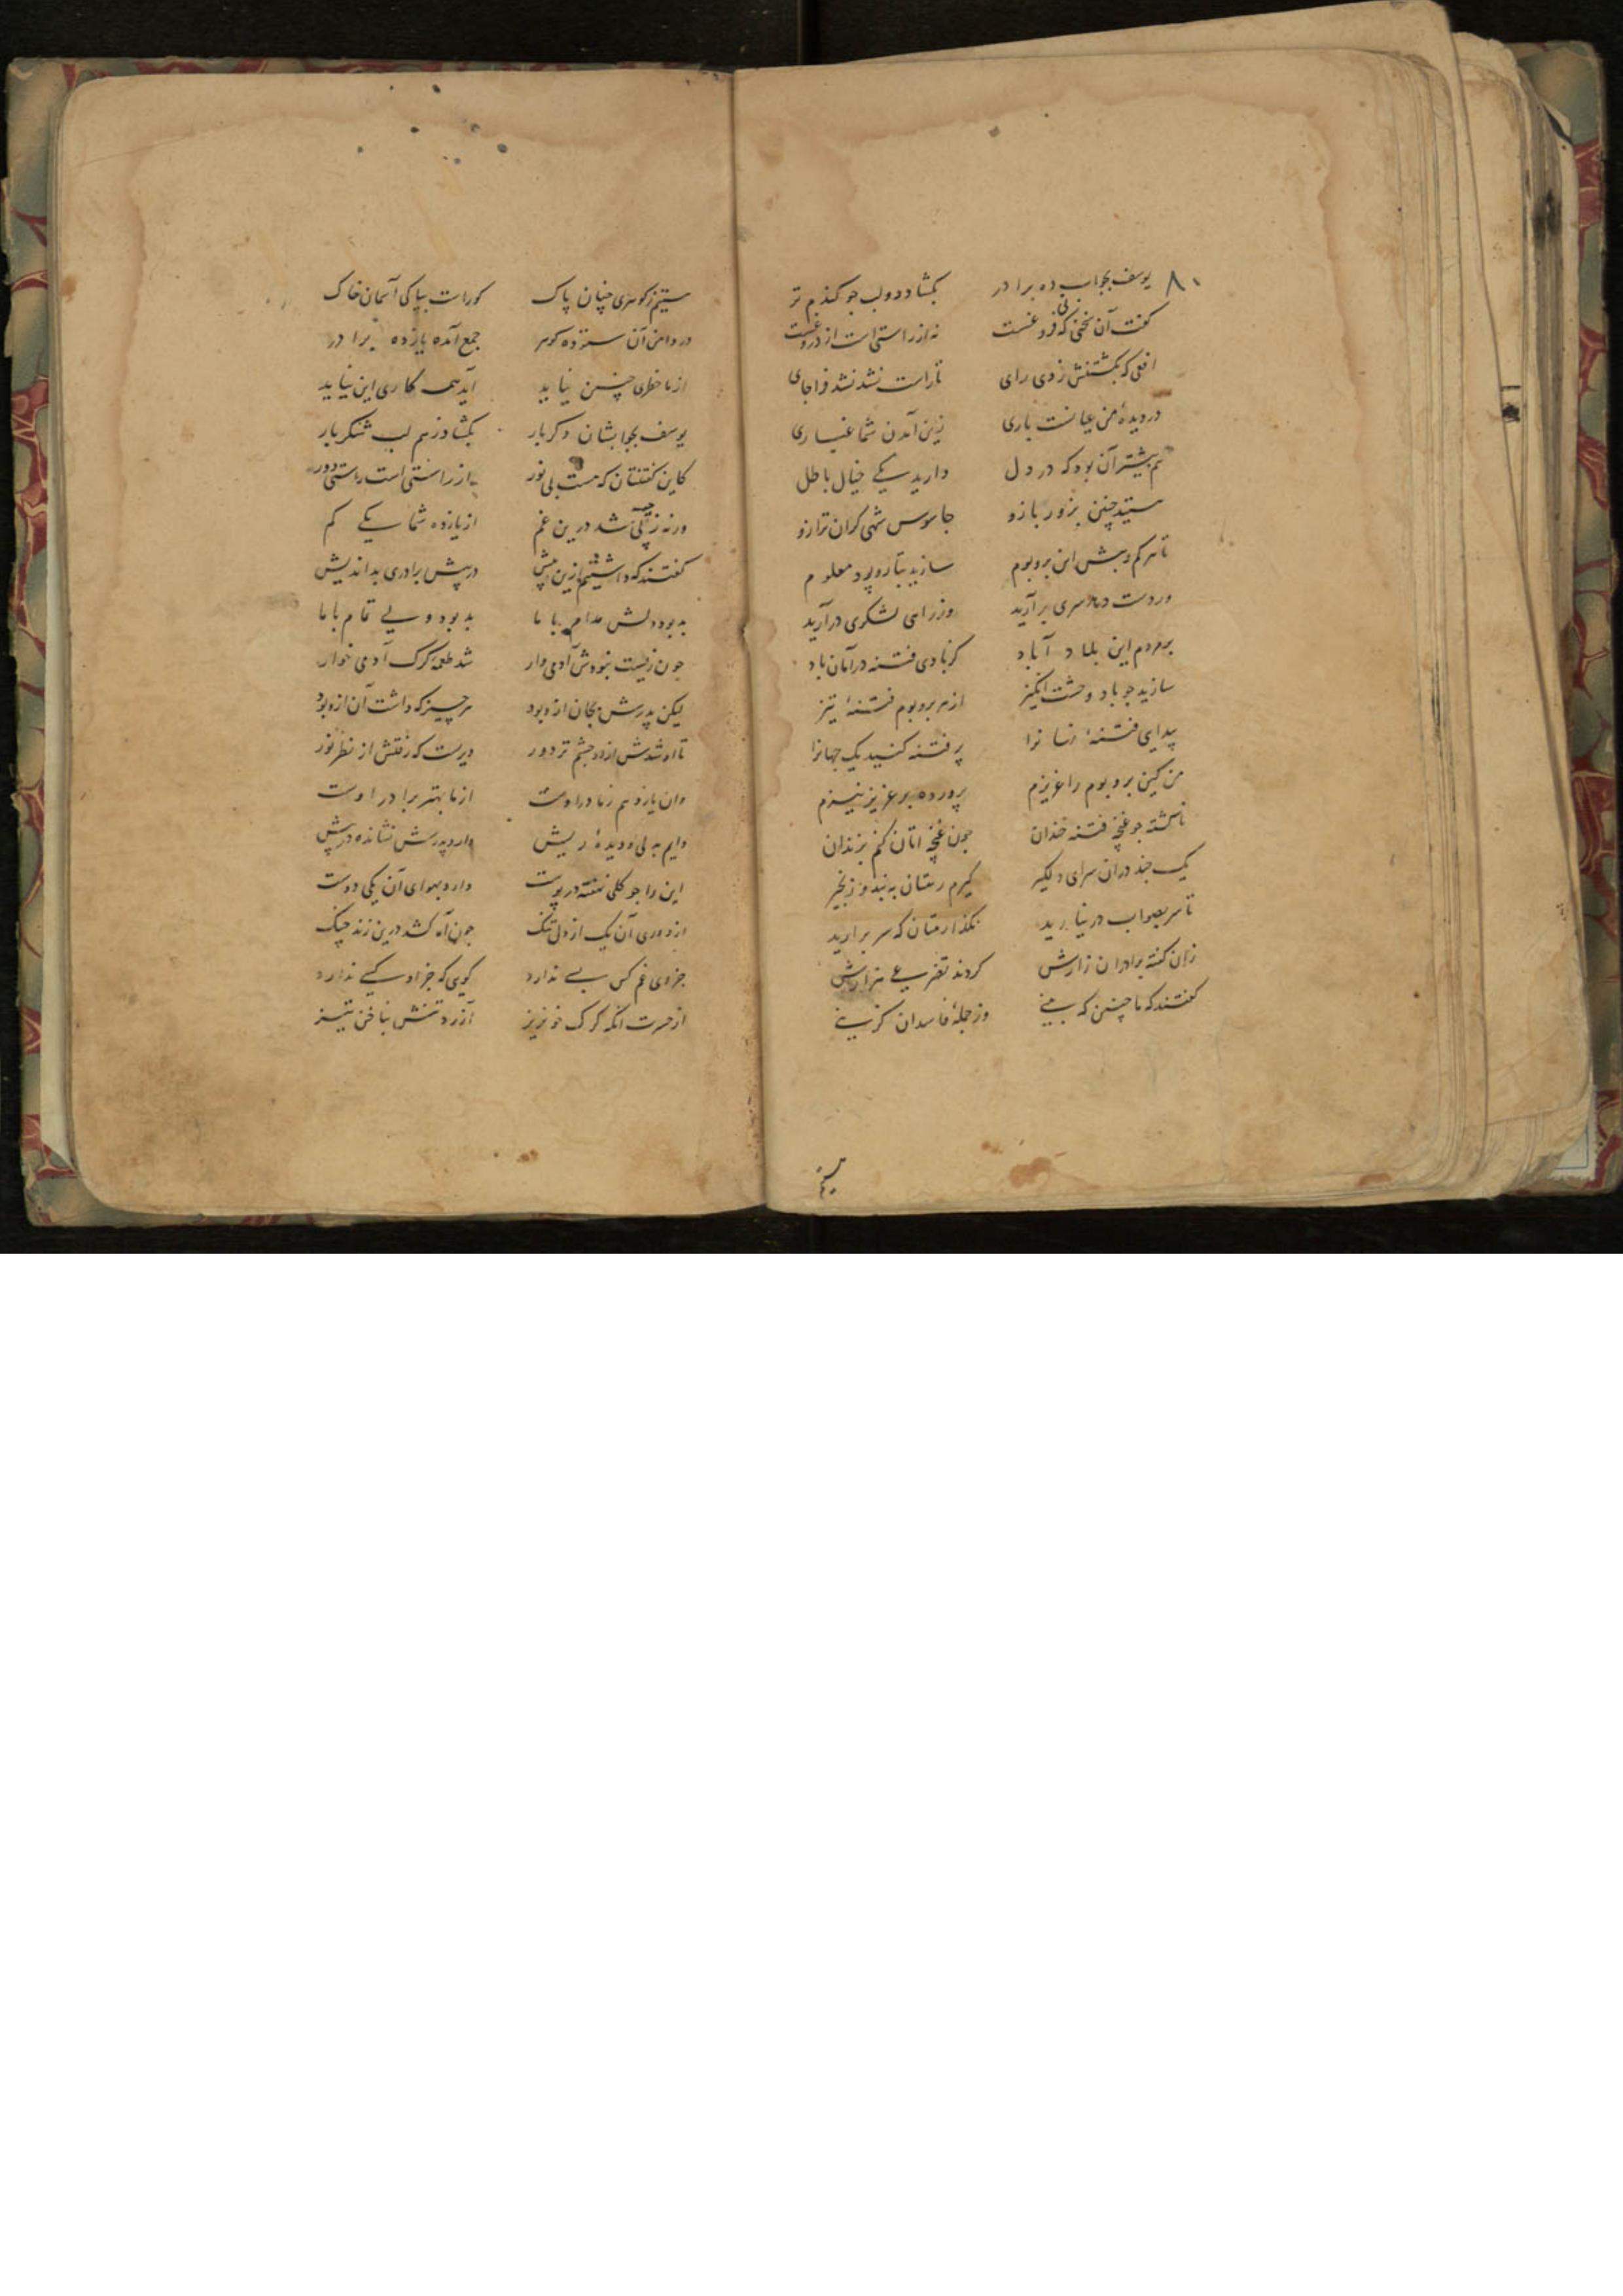 ۸۰
یوسف بجواب ده برادر بکشاد دو لب جو کندم تر
کفت آن سخنی که بی فروغست نه از راستی است از دروغست
افعی که بکشتنش زدی رای تا راست نشد نشد فرا جای
در دیده من عیانست باری زین آمدن شما غباری
بیشتر آن بود که در دل دارید یکی خیال باطل
ستید چنین بزور بازو جاسوس شهی کران ترازو
تا هر کم و بیش این بر و بوم سازید بتار و پود معلوم
در دست سری بر آرید وز رای لشکری در آرید
بر مردم این بلاد آباد کز بادی فتنه در آمان باد
سازید جو باد وحشت انکیز از هر بر و بوم فتنه تیز
پیدای فتنه را پر فتنه کنید یک جهانرا
من کین بر و بوم را عزیزم پرورده بر عزیز نیزم
ناکشته جو غنچه فتنه خندان جون غنچه اتان کنم بزندان
یک جند دران سرای دلکیر کیرم رستان به بند و زنجیر
تا سر بصواب در نیارید نکذارمتان که سر برارید
زان کفته برادران زارش کردند تضرعی هزارش
کفتند که ما چنین که بینی وز جمله فاسدان کزینی
ستیم
ستیم ز کوهری چنان پاک کوراست بپاکی آسمان خاک
در دامن آن ستوده کوهر جمع آمده یازده برادر
از ما خطری چنین نیاید آید همه کاری این نیاید
یوسف بجوابشان دکر بار بکشاد ز هم لب شکر بار
کاین کفتتان که هست بی نور از راستی است راستی دور
ورنه ز چه شد درین غم از یازده شما یکی کم
کفتند که داشتیم ازین پیش در پیش برادری بد اندیش
بد بود دلش مدام با ما بد بود وی تمام با ما
جون زیست نبودش آدمی وار شد طعمه کرک آدمی خوار
لیکن پدرش بجان ازو بود هر چیز که داشت آن ازو بود
تا او شدش از دو جشم تر دور دیرست که رفتش از نظر نور
وان یازدهم ز مادر اوست از ما بهتر برادر اوست
دایم به دیده ریش دارد پدرش نشانده در پیش
این را جو کلی نهفته در پوست دارد بهوای آن یکی دوست
از دوری آن یک از دل تنک جون آه کشد درین زند چنک
جز وی غم کس بسی ندارد کویی که جز او کسی ندارد
از حسرت آنکه کرک خونریز آزرد تنش بناخن تیز